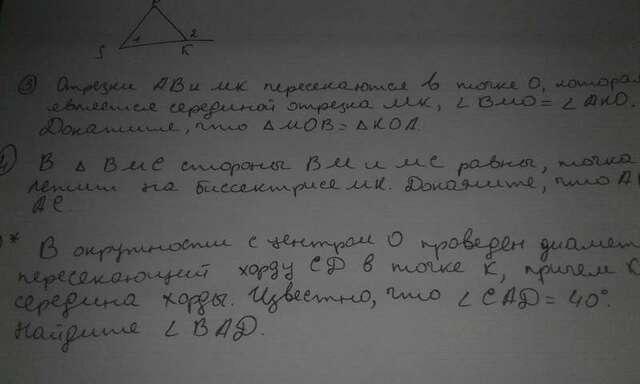 S 1 2 K
③ Отрезки АВ и МК пересекаются в точке О, котора
является серединой отрезка МК, ∠ВМО = ∠АКО.
Докажите, что △МОВ = △КОА.
В △ ВМС стороны ВМ и МС равны, точка
лежит на биссектрисе МК. Докажите, что А
АС.
* В окружности с центром О проведен диамет
пересекающий хорду CD в точке К, причем К
середина хорды. Известно, что ∠CAD = 40°.
Найдите ∠BAD.